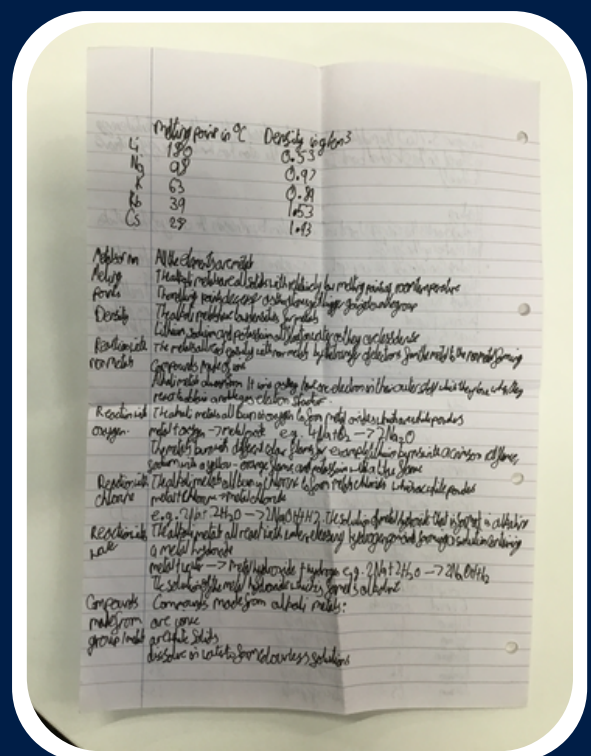 Melting point in °C Density in g/cm3
Li 180 0.53
Na 98 0.97
K 63 0.89
Rb 39 1.53
Cs 28 1.93
All the elements are metals
Melting The alkali metals are all solids with relatively low melting points at room temperature
Points The melting points decrease as the atoms get bigger going down the group
Density The alkali metals have low densities for metals
Lithium, sodium and potassium all float on water as they are less dense
Reaction with The metals all react easily with non metals by the transfer of electrons from the metal to the non metal forming
non metals compounds made of ions
Reaction with The alkali metals all burn in oxygen to form metal oxides which are white powders
oxygen. metal + oxygen → metal oxide e.g. 4Na + O2 → 2Na2O
The metals burn with different colour flames for example lithium burns with a crimson red flame,
sodium with a yellow-orange flame and potassium with a flame
Reaction with The alkali metals all burn in chlorine to form metal chlorides which are white powders
chlorine metal + chlorine → metal chloride
e.g. 2Na + 2H2O → 2NaOH + H2. The solution of metal hydroxide that is formed is alkaline
Reaction with The alkali metals all react with water releasing hydrogen gas and forming a solution containing
a metal hydroxide
metal + water → metal hydroxide + hydrogen e.g. 2Na + 2H2O → 2NaOH + H2
The solution of the metal hydroxide which is formed is alkaline
Compounds Compounds made from alkali metals:
made from are ionic
group 1 metals are white solids
dissolve in water to form colourless solutions